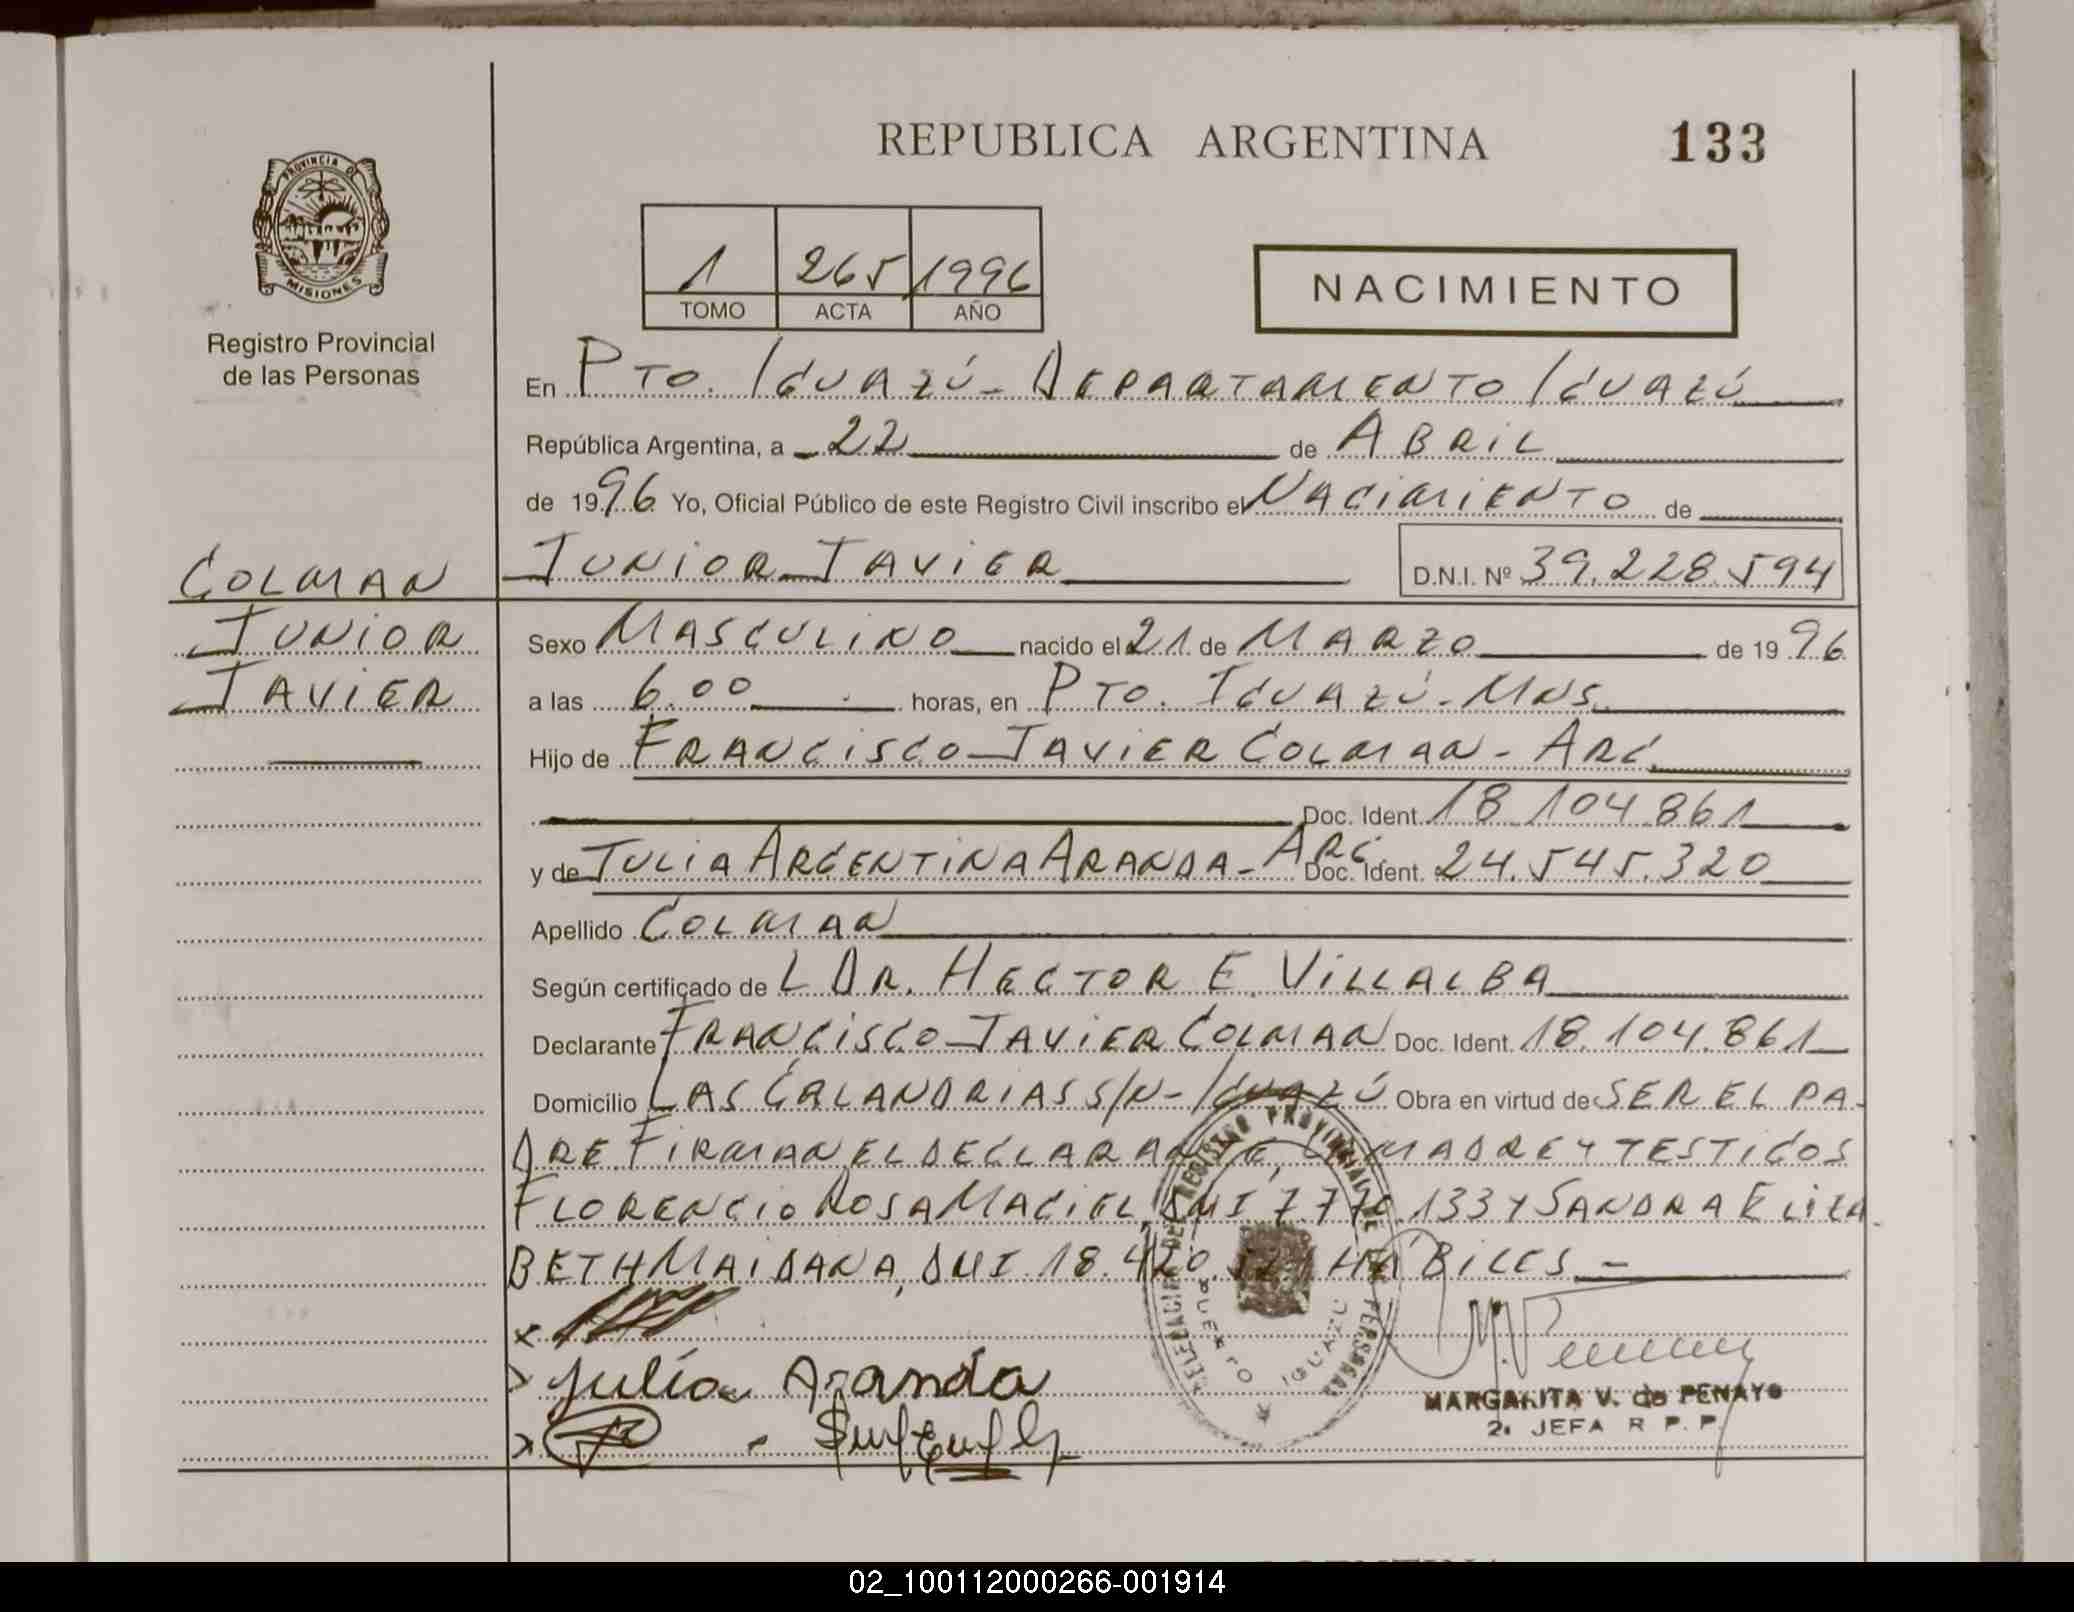 REPUBLICA ARGENTINA 133
PROVINCIA DE
MISIONES
Registro Provincial
de las Personas
1 265 1996
TOMO ACTA AÑO
NACIMIENTO
En PTO. IGUAZÚ - DEPARTAMENTO IGUAZÚ
República Argentina, a 22 de ABRIL
de 1996 Yo, Oficial Público de este Registro Civil inscribo el NACIMIENTO de
JUNIOR JAVIER D.N.I. Nº 39.228.594
COLMAN
JUNIOR
JAVIER
Sexo MASCULINO nacido el 21 de MARZO de 1996
a las 6.00 horas, en PTO. IGUAZÚ - MNS.
Hijo de FRANCISCO JAVIER COLMAN - ARG.
Doc. Ident. 18.104.861
y de JULIA ARGENTINA ARANDA - ARG. Doc. Ident. 24.545.320
Apellido COLMAN
Según certificado de L DR. HECTOR E. VILLALBA
Declarante FRANCISCO JAVIER COLMAN Doc. Ident. 18.104.861
Domicilio LAS CALANDRIAS S/N - IGUAZÚ Obra en virtud de SER EL PA-
DRE FIRMAN EL DECLARANTE, LA MADRE Y TESTIGOS
FLORENCIO ROSA MACIEL, DNI 7.770.133 Y SANDRA ELIZA-
BETH MAIDANA, DNI 18.420. HABILES -
x
> Julia Aranda
>
DELEGACION DE REGISTRO PROVINCIAL DE PERSONAS
PUERTO IGUAZU
MARGARITA V. de PENAYO
2. JEFA R P. P.
02_100112000266-001914